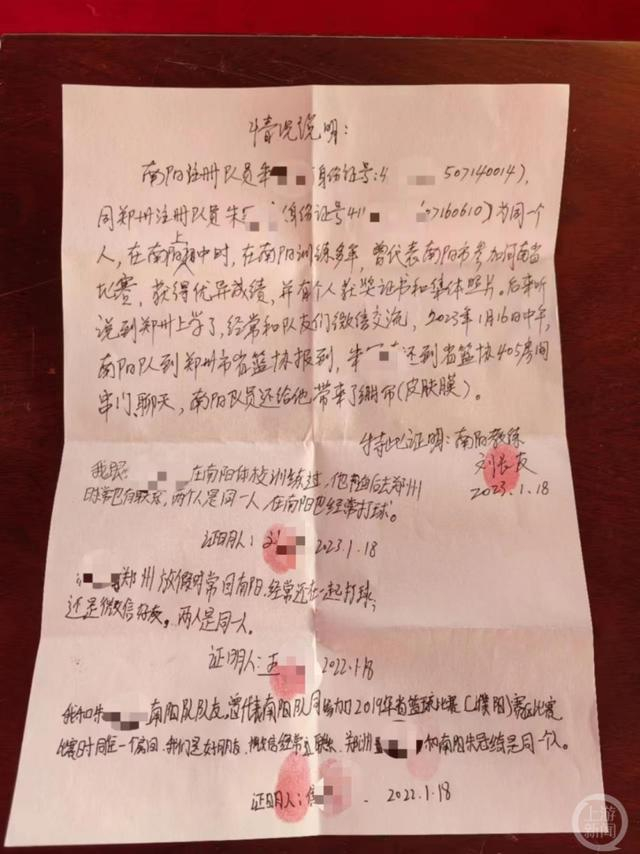 情况说明:
南阳注册队员朱 (身份证号:4 507140014),
同郑州注册队员朱 (身份证号411 07160610)为同一个
人,在南阳上初中时,在南阳训练多年,曾代表南阳市参加河南省
比赛,获得优异成绩,并有个人获奖证书和集体照片。后来听
说到郑州上学了,经常和队友们微信交流,2023年1月16日中午,
南阳队到郑州市省篮协报到,朱 还到省篮协405房间
串门,聊天,南阳队员还给他带来了绷布(皮肤膜)。
特此证明:南阳教练
刘长友
2023.1.18
我跟 在南阳体校训练过,他 后去郑州
时常也有联系,两个人是同一人,在南阳也经常打球。
证明人: 2023.1.18
郑州放假时常回南阳,经常还在一起打球,
还是微信好友。两人是同一人。
证明人:王 2022.1.18
我和朱 南阳队队友,曾代表南阳队同参加2019年省篮球比赛(濮阳)赛区比赛
比赛时同在一个房间,我们是好朋友,微信经常互联系,郑州 和南阳朱 是同一个人。
证明人: 2022.1.18
上游
新闻